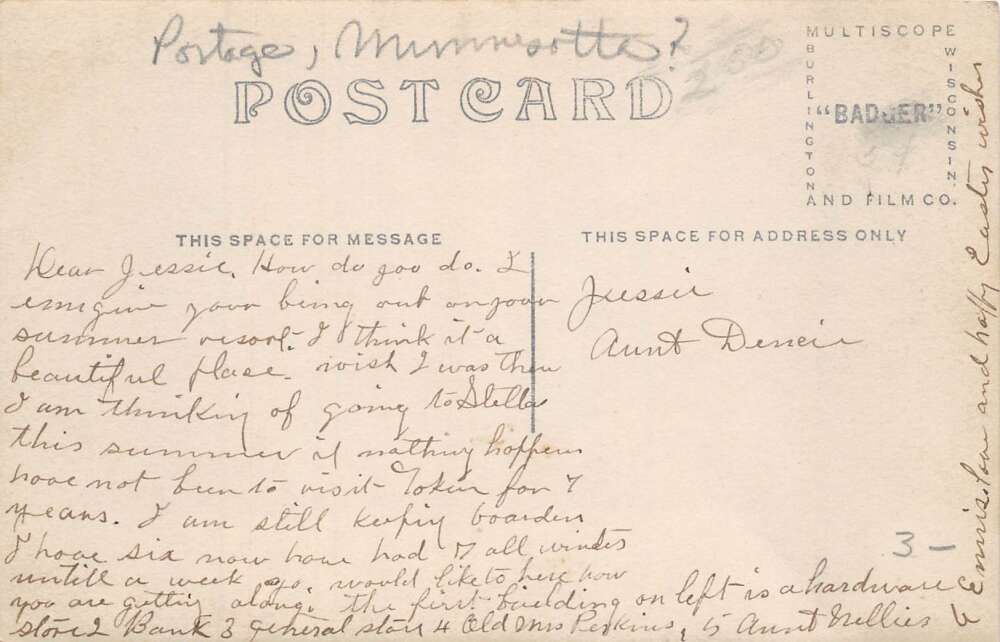 Portage, Minnesotta?
200
POST CARD
MULTISCOPE
BURLINGTON
WISCONSIN.
"BADGER"
AND FILM CO.
THIS SPACE FOR MESSAGE
THIS SPACE FOR ADDRESS ONLY
Dear Jessie. How do you do. I
emigin your being out on your
summer resort. I think it a
beautiful plase. wish I was then
I am thinking of going to Stellas
this summer if nathing happens
have not been to visit Token for 7
years. I am still keepig boarders
I have six now have had 7 all winter
untill a week ago. would like to here how
you are getting along. the first building on left is a hardware
store 2 Bank 3 general store 4 Old Mrs Perkins, 5 Aunt Nellies
6 and happy Easter wishes
Jessie
Aunt
3 -